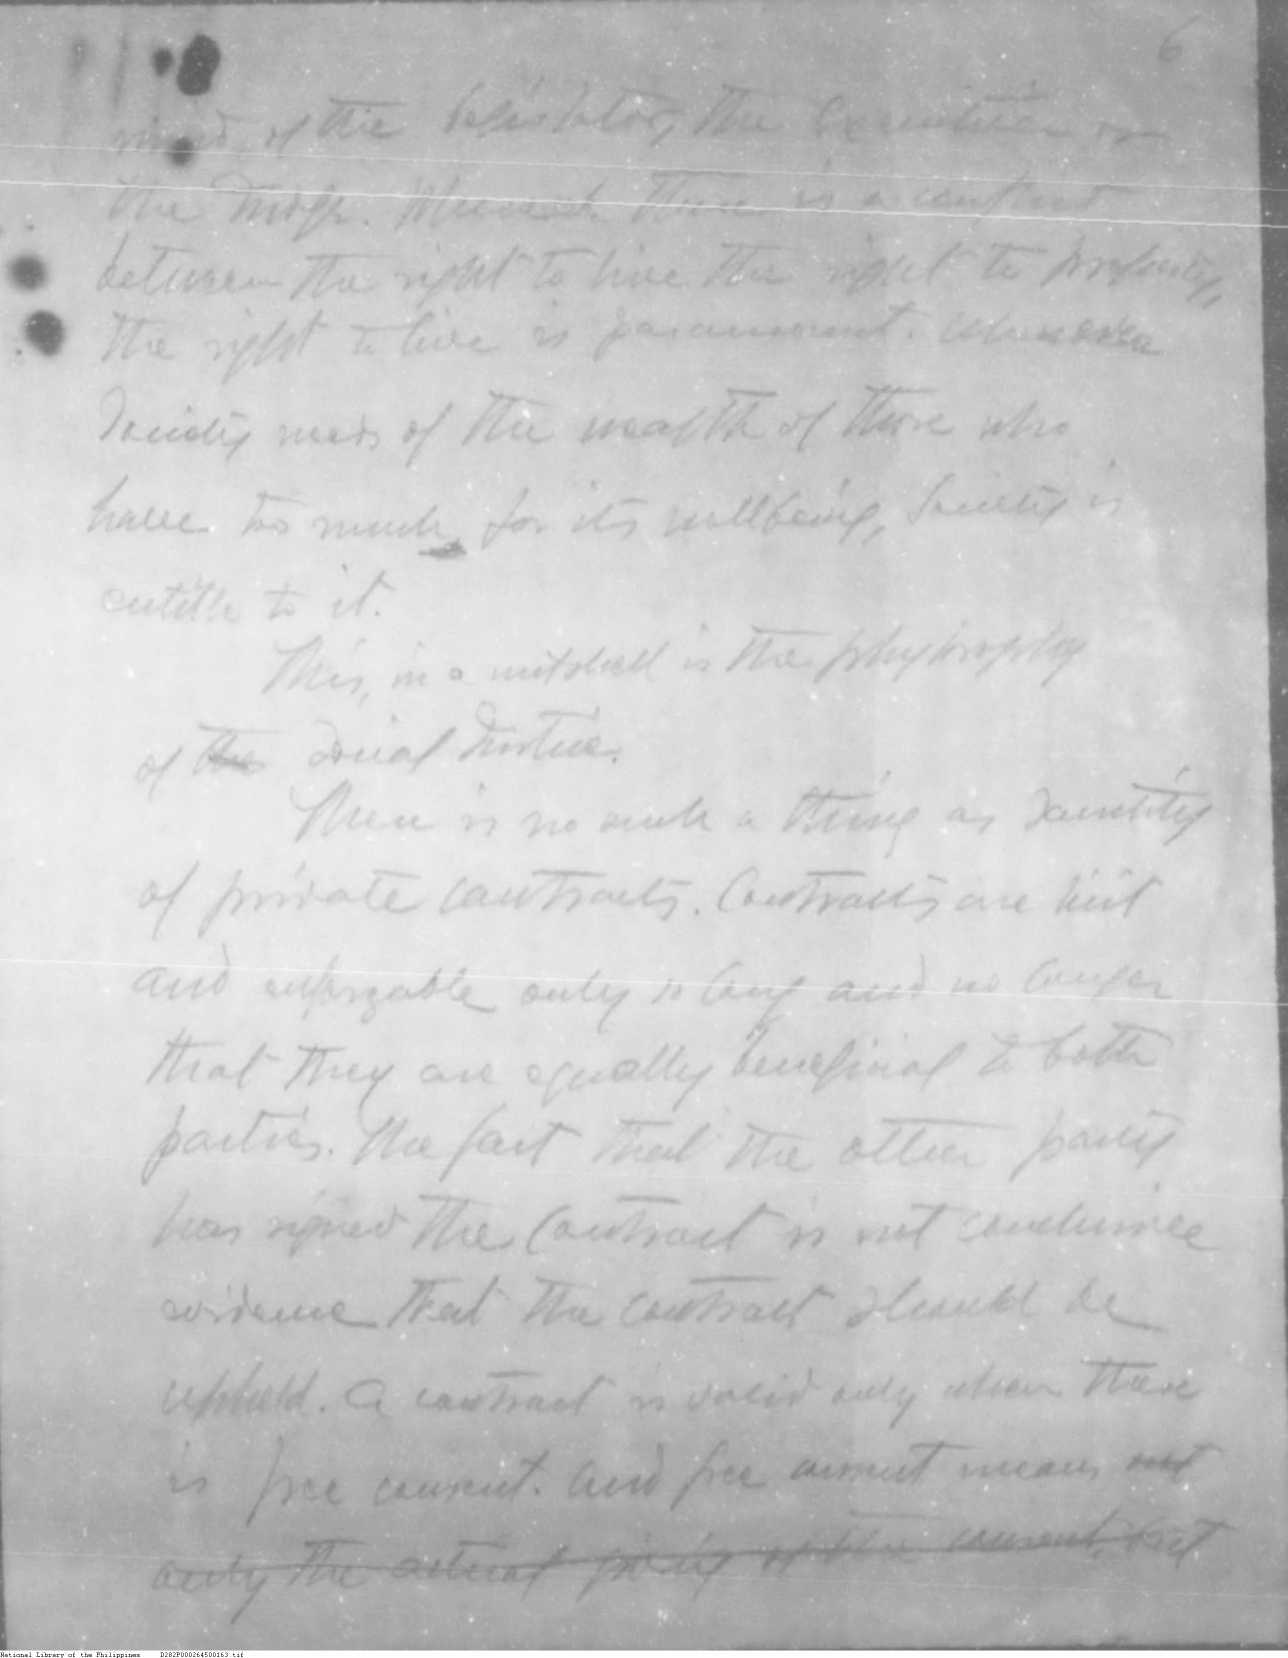 6
mind of the legislator, the Executive or
the Judge. Whenever there is a conflict
between the right to live the right to property,
the right to live is paramount. Whenever
Society needs of the wealth of those who
have too much for its wellbeing, Society is
entitle to it.
This, in a nutshell is the phylosophy
of the Social Justice.
There is no such a thing as Sanctity
of private contracts. Contracts are
and enforzable only so long and no longer
that they are equally beneficial to both
parties. The fact that the other party
has signed the Contract is not conclusive
evidence that the contract should be
upheld. A contract is valid only when there
is free consent. And free consent means not
only the actual giving of the consent, but
National Library of the Philippines D282P000264500163.tif